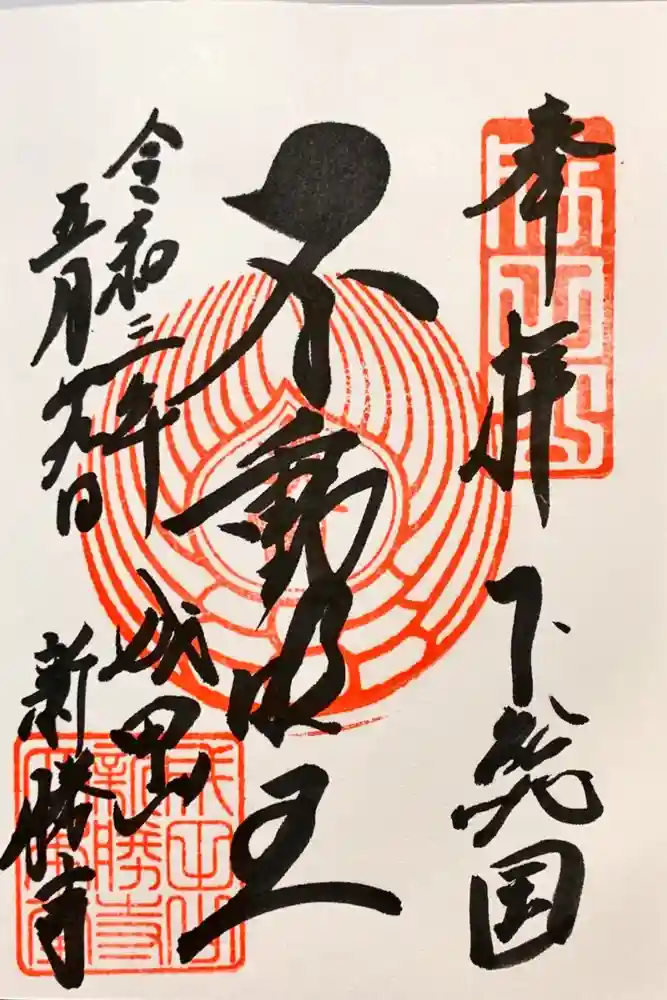 奉拝 下総国
不動明王
令和三年 成田山
五月十九日 新勝寺
成田山
新勝寺